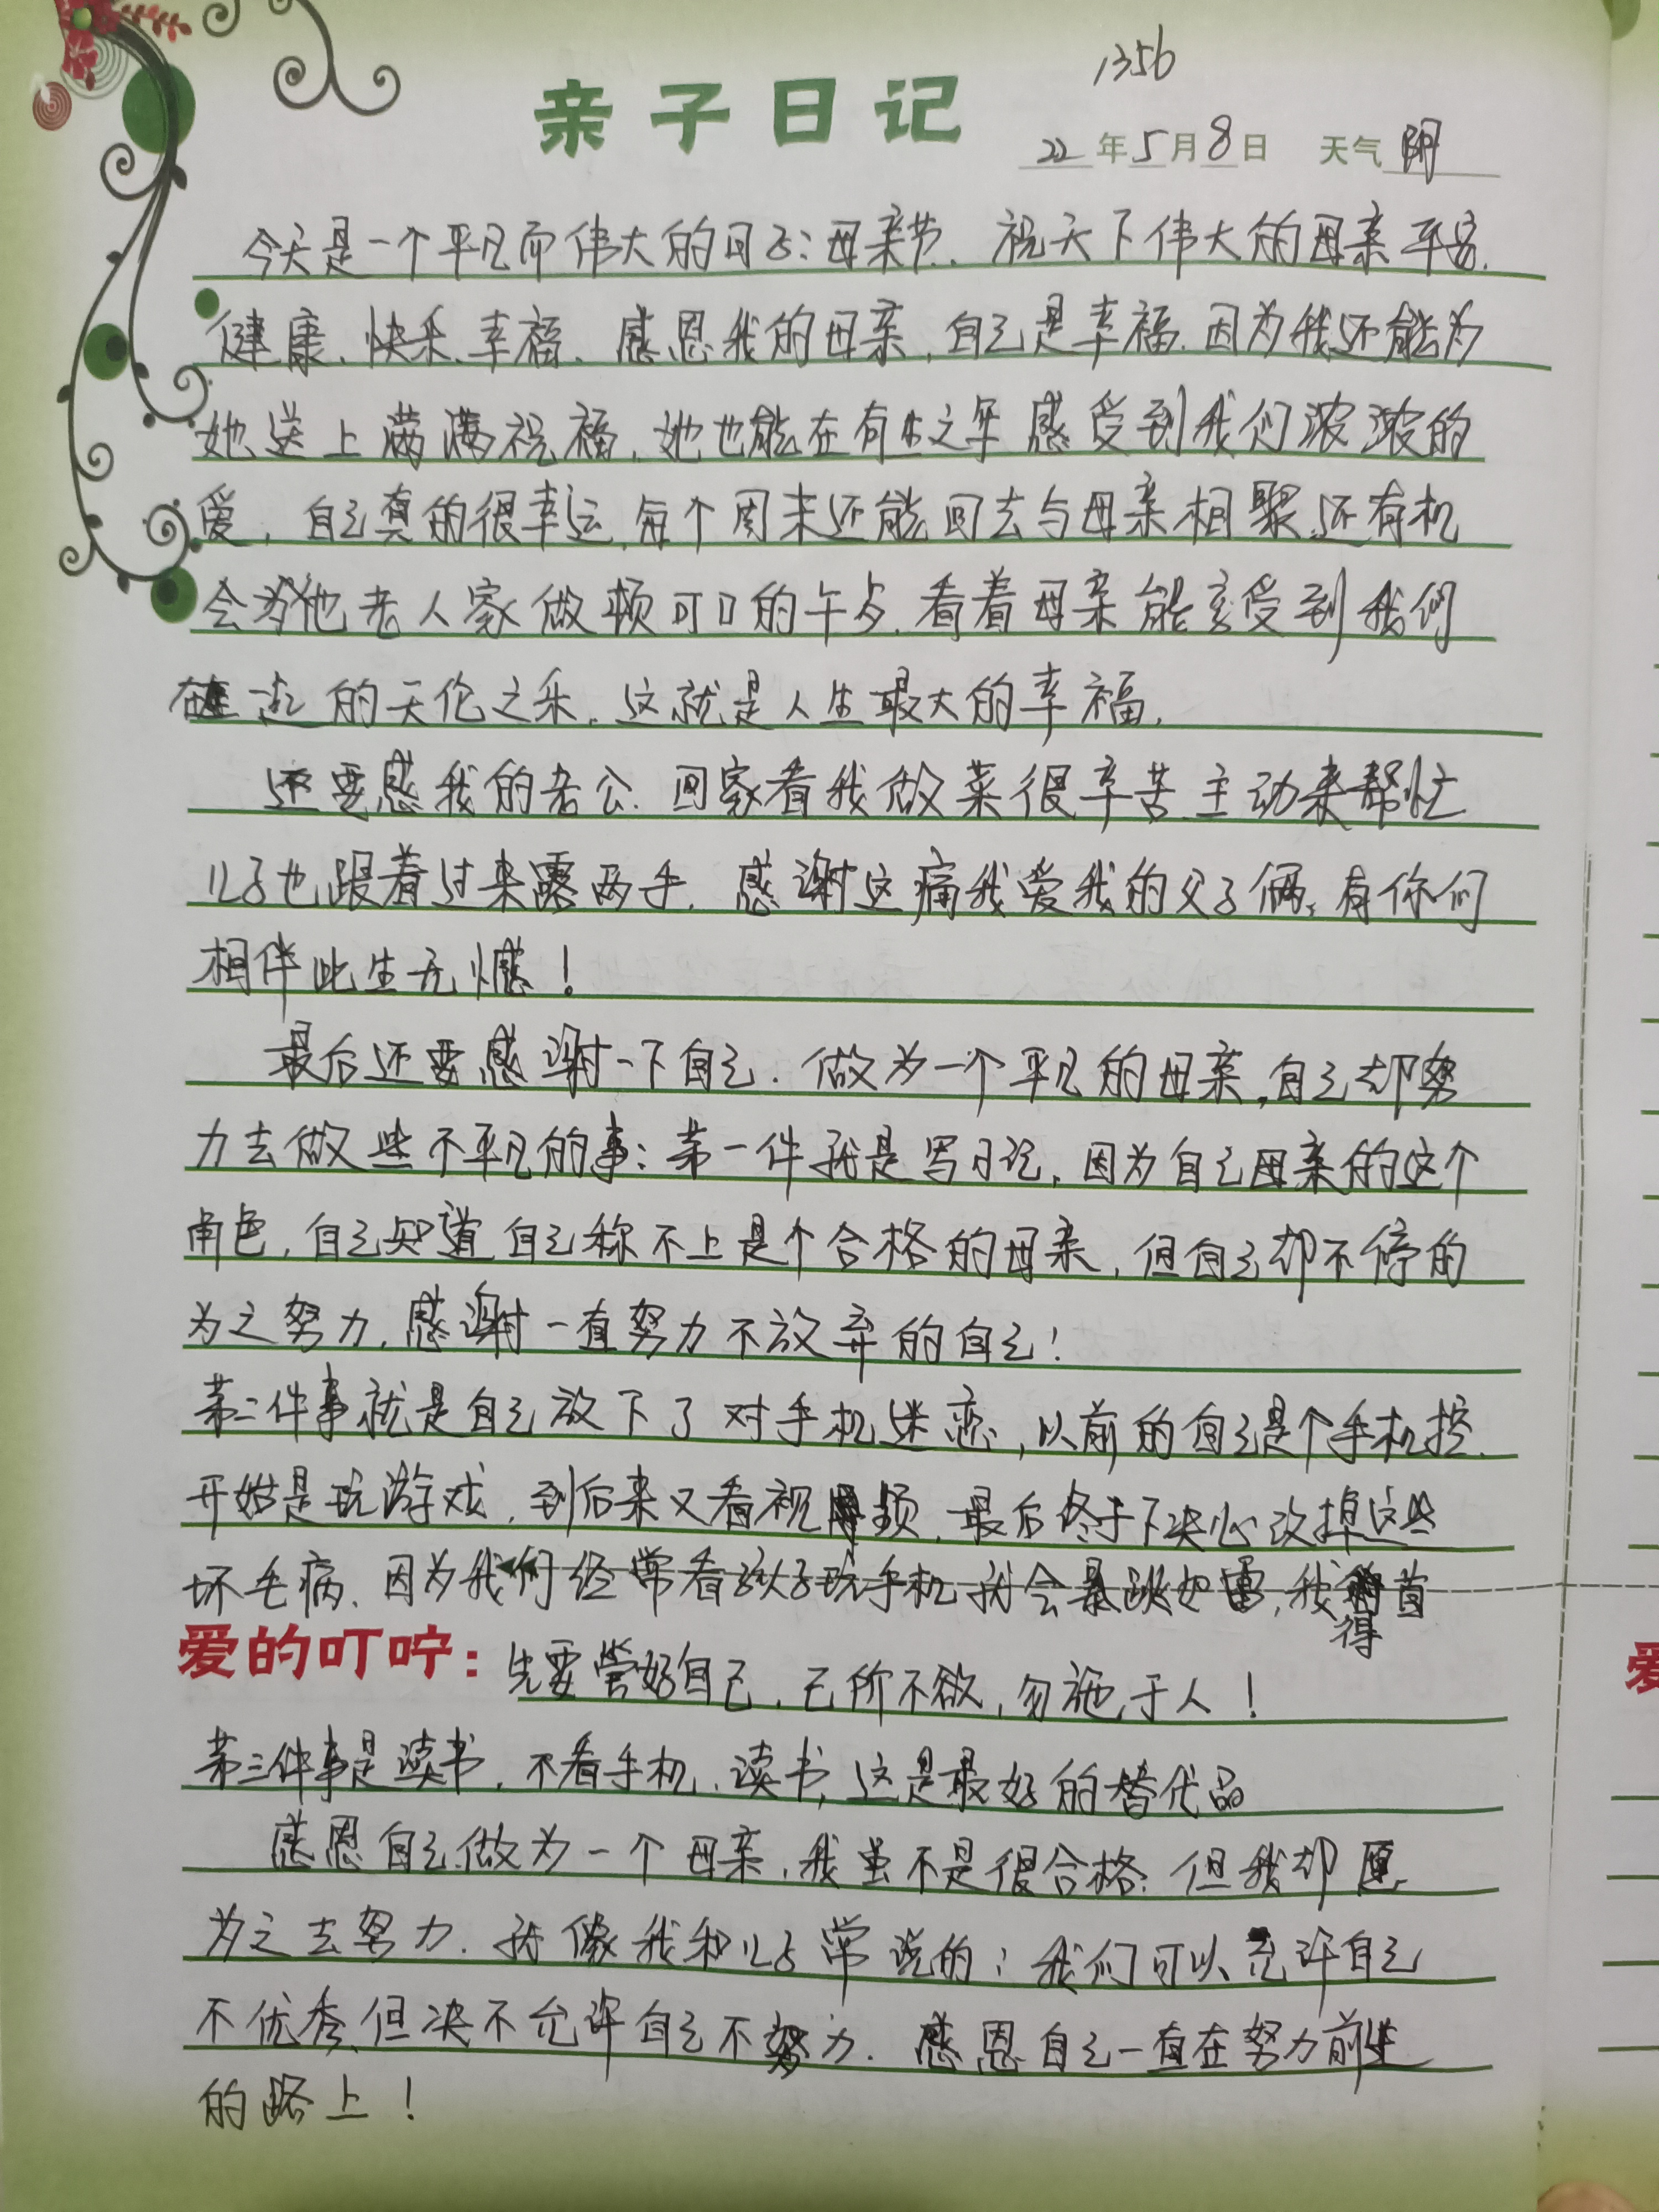 1356
亲子日记
22年5月8日 天气 阴
今天是一个平凡而伟大的日子:母亲节、祝天下伟大的母亲平安、
健康、快乐、幸福、感恩我的母亲,自己是幸福、因为我还能为
她送上满满祝福、她也能在有生之年感受到我们浓浓的
爱,自己真的很幸运、每个周末还能回去与母亲相聚、还有机
会为他老人家做顿可口的午歺、看着母亲能享受到我们
在一起的天伦之乐、这就是人生最大的幸福、
还要感我的老公、回家看我做菜很辛苦、主动来帮忙
儿子也跟着过来露两手、感谢这痛我爱我的父子俩、有你们
相伴此生无憾!
最后还要感谢一下自己、做为一个平凡的母亲,自己却努
力去做些不平凡的事:第一件就是写日记,因为自己母亲的这个
角色,自己知道自己称不上是个合格的母亲,但自己却不停的
为之努力、感谢一直努力不放弃的自己!
第二件事就是自己放下了对手机迷恋,以前的自己是个手机控、
开始是玩游戏,到后来又看视频、最后终于下决心改掉这些
坏毛病、因为我们经常看孩子玩手机就会暴跳如雷,我得首
爱的叮咛:先要管好自己,己所不欲,勿施于人!
第三件事是读书,不看手机、读书,这是最好的替代品
感恩自己做为一个母亲,我虽不是很合格、但我却愿
为之去努力、就像我和儿子常说的:我们可以允许自己
不优秀、但决不允许自己不努力、感恩自己一直在努力前进
的路上!